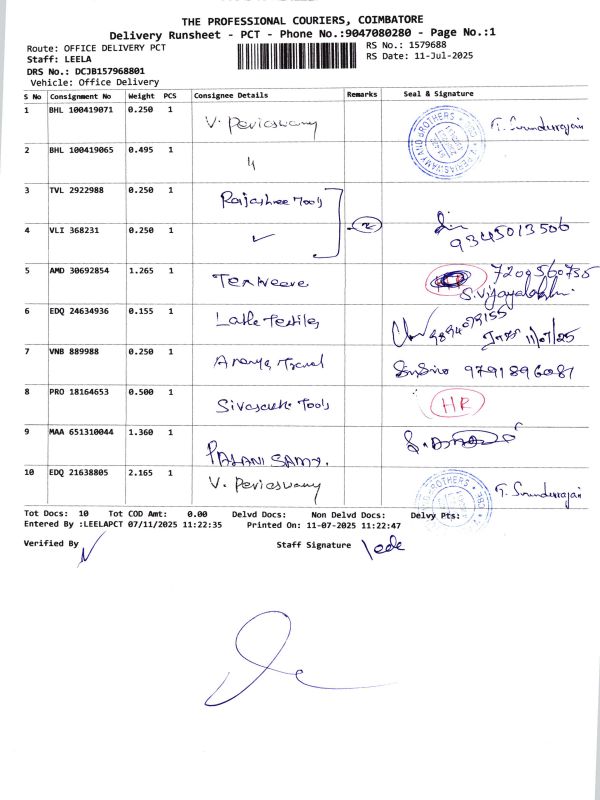 THE PROFESSIONAL COURIERS, COIMBATORE
Delivery Runsheet - PCT - Phone No.:9047080280 - Page No.:1
Route: OFFICE DELIVERY PCT
RS No.: 1579688
Staff: LEELA
RS Date: 11-Jul-2025
DRS No.: DCJB157968801
Vehicle: Office Delivery
S No Consignment No Weight PCS Consignee Details Remarks Seal & Signature
1 BHL 100419071 0.250 1 V. Periaswamy T. Sounderrajan
2 BHL 100419065 0.495 1 "
3 TVL 2922988 0.250 1 Rajashree Tools
4 VLI 368231 0.250 1 ✓ 2 9345013506
5 AMD 30692854 1.265 1 Texweave 7209560735
S. Vijayalakshmi
6 EDQ 24634936 0.155 1 9894079155 11/07/25
7 VNB 889988 0.250 1 Ananya Travel 9791896087
8 PRO 18164653 0.500 1 Tools HR
9 MAA 651310044 1.360 1 PALANI SAMY.
10 EDQ 21638805 2.165 1 V. Periaswamy T. Sounderrajan
Tot Docs: 10 Tot COD Amt: 0.00 Delvd Docs: Non Delvd Docs: Delvy Pts:
Entered By :LEELAPCT 07/11/2025 11:22:35 Printed On: 11-07-2025 11:22:47
Verified By Staff Signature